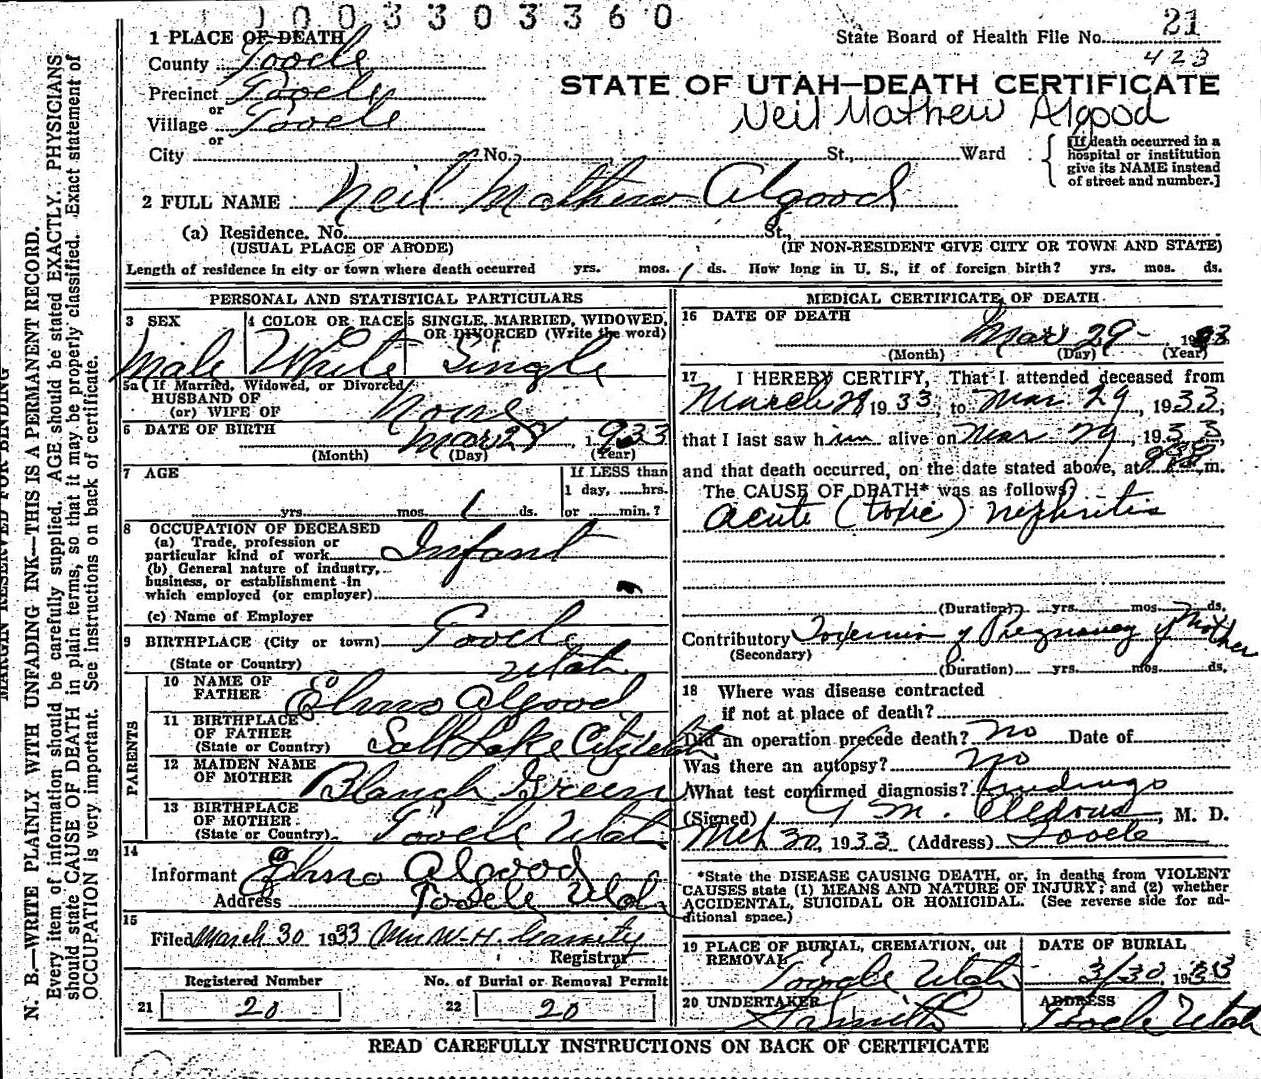 1003303360
1 PLACE OF DEATH
State Board of Health File No. 21
423
County Tooele
Precinct Tooele
or
Village Tooele
or
City No. St., Ward
STATE OF UTAH—DEATH CERTIFICATE
Neil Mathew Algood
[If death occurred in a
hospital or institution
give its NAME instead
of street and number.]
2 FULL NAME Neil Mathew Algood
(a) Residence. No. St.,
(USUAL PLACE OF ABODE) (IF NON-RESIDENT GIVE CITY OR TOWN AND STATE)
Length of residence in city or town where death occurred yrs. mos. 1 ds. How long in U. S., if of foreign birth? yrs. mos. ds.
PERSONAL AND STATISTICAL PARTICULARS
3 SEX
Male
4 COLOR OR RACE
White
5 SINGLE, MARRIED, WIDOWED,
OR DIVORCED (Write the word)
Single
5a If Married, Widowed, or Divorced
HUSBAND OF
(or) WIFE OF None
6 DATE OF BIRTH Mar 28, 1933
(Month) (Day) (Year)
7 AGE
If LESS than
1 day, ......hrs.
yrs. mos. 1 ds. or ......min.?
8 OCCUPATION OF DECEASED
(a) Trade, profession or
particular kind of work Infant
(b) General nature of industry,
business, or establishment in
which employed (or employer)
(c) Name of Employer
9 BIRTHPLACE (City or town) Tooele
(State or Country) Utah
PARENTS
10 NAME OF
FATHER Elmo Algood
11 BIRTHPLACE
OF FATHER
(State or Country) Salt Lake City Utah
12 MAIDEN NAME
OF MOTHER Blanch Green
13 BIRTHPLACE
OF MOTHER
(State or Country) Tooele Utah
14
Informant Elmo Algood
Address Tooele Utah
15
Filed March 30 1933 Mrs W. H.
Registrar
Registered Number No. of Burial or Removal Permit
21 20 22 20
MEDICAL CERTIFICATE OF DEATH
16 DATE OF DEATH
Mar 29 1933
(Month) (Day) (Year)
17 I HEREBY CERTIFY, That I attended deceased from
March 28 1933 to Mar. 29, 1933,
that I last saw him alive on Mar 29, 1933,
and that death occurred, on the date stated above, at m.
The CAUSE OF DEATH* was as follows:
Acute (toxic) nephritis
(Duration) yrs. mos. ds.
Contributory Toxemia of Pregnancy of Mother
(Secondary)
(Duration) yrs. mos. ds.
18 Where was disease contracted
if not at place of death?
Did an operation precede death? No Date of
Was there an autopsy? No
What test confirmed diagnosis? Findings
(Signed) M. D.
Mch 30, 1933 (Address) Tooele
*State the DISEASE CAUSING DEATH, or, in deaths from VIOLENT
CAUSES state (1) MEANS AND NATURE OF INJURY; and (2) whether
ACCIDENTAL, SUICIDAL OR HOMICIDAL. (See reverse side for ad-
ditional space.)
19 PLACE OF BURIAL, CREMATION, OR
REMOVAL
Tooele Utah
DATE OF BURIAL
3/30 1933
20 UNDERTAKER
Smith
ADDRESS
Tooele Utah
READ CAREFULLY INSTRUCTIONS ON BACK OF CERTIFICATE
MARGIN RESERVED FOR BINDING
N. B.—WRITE PLAINLY WITH UNFADING INK—THIS IS A PERMANENT RECORD.
Every item of information should be carefully supplied. AGE should be stated EXACTLY. PHYSICIANS
should state CAUSE OF DEATH in plain terms, so that it may be properly classified. Exact statement of
OCCUPATION is very important. See instructions on back of certificate.